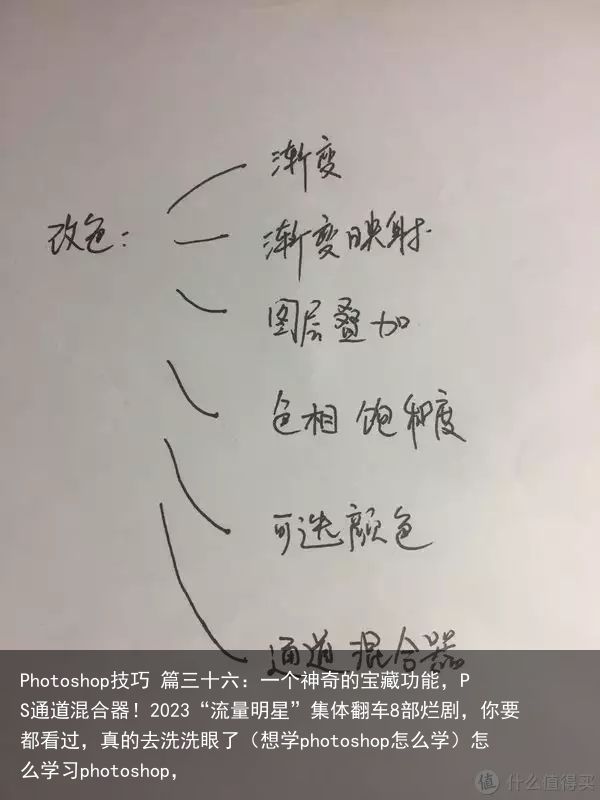 渐变
改色：
渐变映射
图层叠加
色相 饱和度
可选颜色
通道混合器
Photoshop技巧 篇三十六：一个神奇的宝藏功能，P
S通道混合器！2023“流量明星”集体翻车8部烂剧，你要
都看过，真的去洗洗眼了（想学photoshop怎么学）怎
么学习photoshop，
值 什么值得买